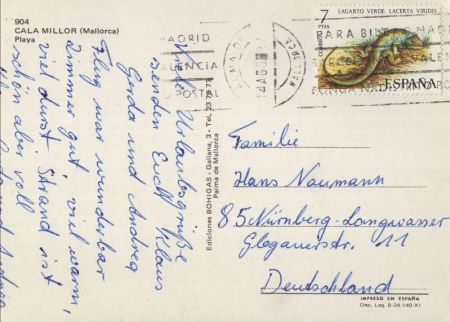 904
CALA MILLOR (Mallorca)
Playa
Viele Urlaubsgrüße
senden Euch Klaus
Gerda und Andrea
Flug war wunderbar
Zimmer gut, viel warm,
viel durst Strand ist
schön aber voll
Ediciones BOHIGAS - Gallana, 3 - Tel. 23
Palma de Mallorca
MADRID
VALENCIA
POSTAL
PALMA D
MALLORCA
7
PTAS
LAGARTO VERDE. LACERTA VIRIDIS
CORREOS
ESPAÑA
Familie
Hans Naumann
85 Nürnberg-Langwasser
Glogauerstr. 11
Deutschland
IMPRESO EN ESPAÑA
Dep. Leg. B-24.140-XI